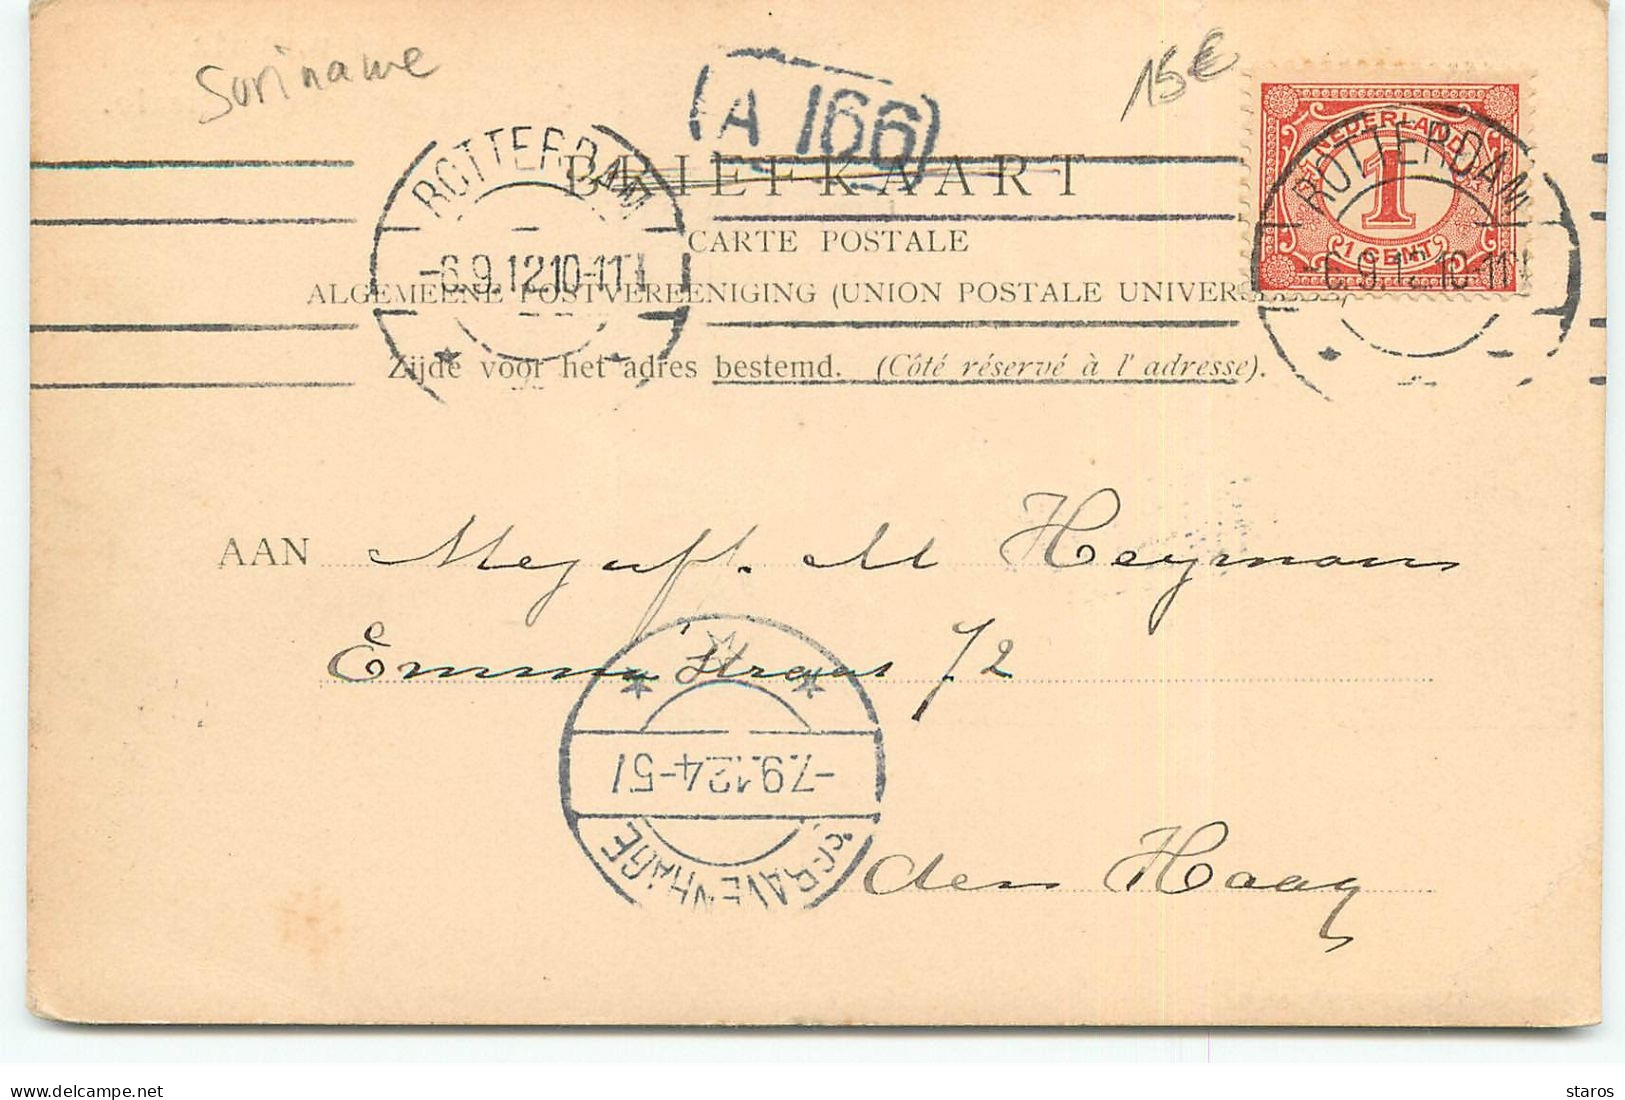 Suriname
15€
A 166
ROTTERDAM
-6.9.12.10-11V
NEDERLAND
1
1 CENT
ROTTERDAM
BRIEFKAART
CARTE POSTALE
ALGEMEENE POSTVEREENIGING (UNION POSTALE UNIVERSELLE)
Zijde voor het adres bestemd. (Côté réservé à l'adresse).
AAN Mejuff. M Heymans
Emma Straat 72
-7.9.12 4-5
'S-GRAVENHAGE
den Haag
delcampe.net
staros